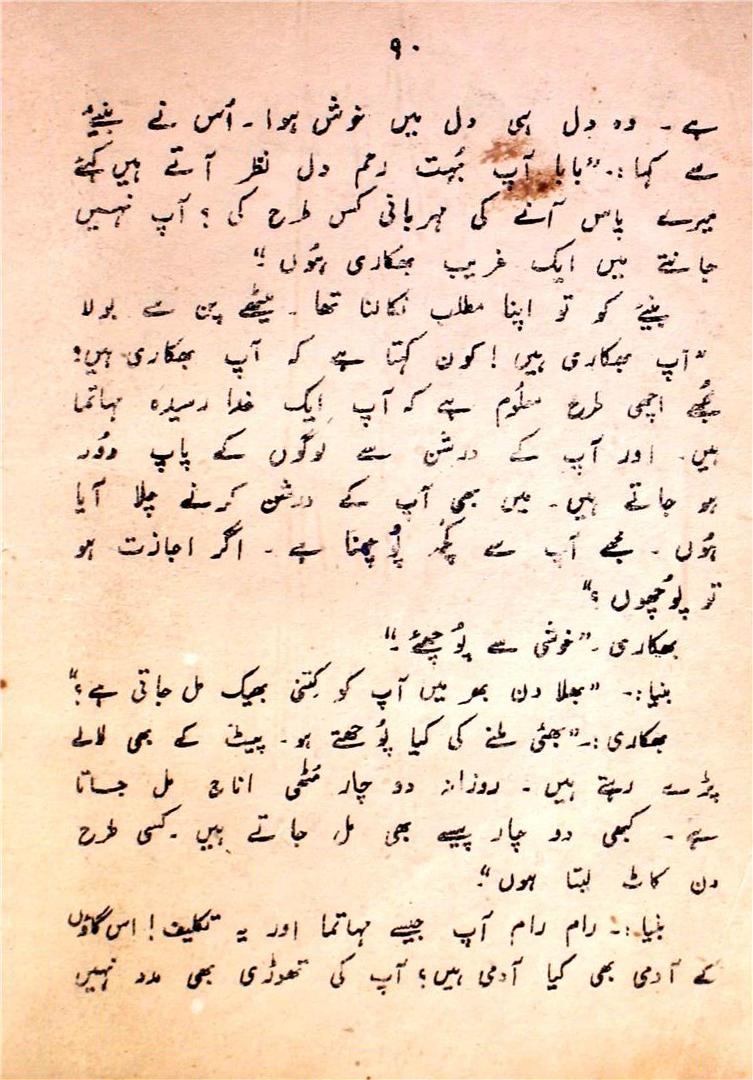 ۹۰
ہے۔ وہ دل ہی دل میں خوش ہوا۔ اُس نے بنیٔے
سے کہا:۔ "بابا آپ بُہت رحم دل نظر آتے ہیں کۂے
میرے پاس آنے کی مہربانی کس طرح کی؟ آپ نہیں
جانتے میں ایک غریب بھکاری ہُوں!"
بنیٔے کو تو اپنا مطلب نکالنا تھا۔ میٹھے پن سے بولا
"آپ بھکاری ہیں! کون کہتا ہے کہ آپ بھکاری ہیں؟
مُجھے اچھی طرح معلُوم ہے کہ آپ ایک خدا رسیدہ مہاتما
ہیں۔ اور آپ کے درشن سے لوگوں کے پاپ دوُر
ہو جاتے ہیں۔ میں بھی آپ کے درشن کرنے چلا آیا
ہُوں۔ مجھے آپ سے کچُھ پُوچھنا ہے۔ اگر اجازت ہو
تو پوُچھوں؟"
بھکاری۔ "خوشی سے پوُچھئے۔"
بنیا:۔ "بھلا دن بھر میں آپ کو کِتنی بھیک مل جاتی ہے؟"
بھکاری:۔ "بھئی ملنے کی کیا پوُچھتے ہو۔ پیٹ کے بھی لالے
پڑے رہتے ہیں۔ روزانہ دو چار مُٹھی اناج مل جاتا
ہے۔ کبھی دو چار پیسے بھی مل جاتے ہیں۔ کسی طرح
دن کاٹ لیتا ہوں"۔
بنیا:۔ رام رام آپ جیسے مہاتما اور یہ تکلیف! اس گاؤں
کے آدمی بھی کیا آدمی ہیں؟ آپ کی تھوڑی بھی مدد نہیں